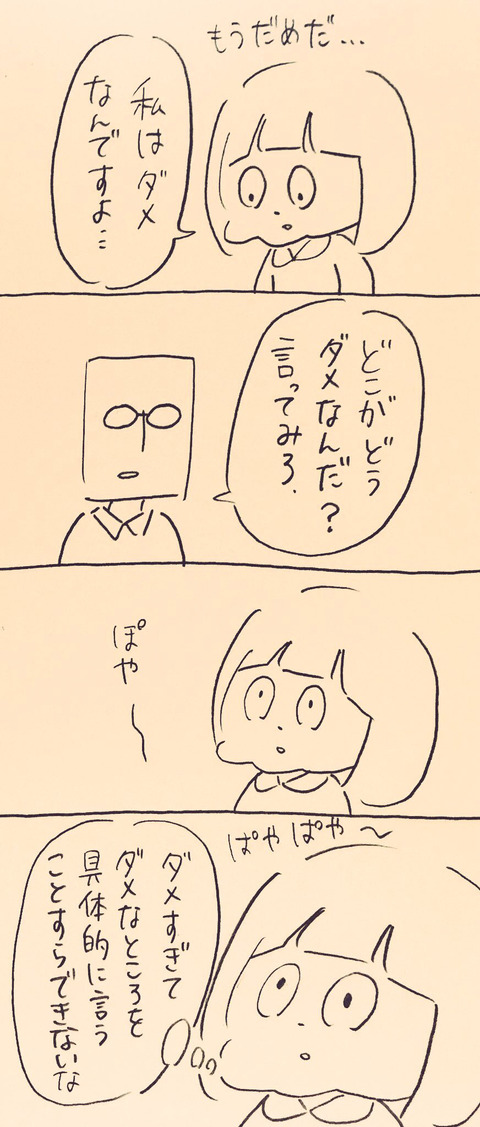 もうだめだ...
私はダメ
なんですよ...
どこがどう
ダメなんだ?
言ってみろ.
ぽや〜
ぽやぽや〜
ダメすぎて
ダメなところを
具体的に言う
ことすらできないな